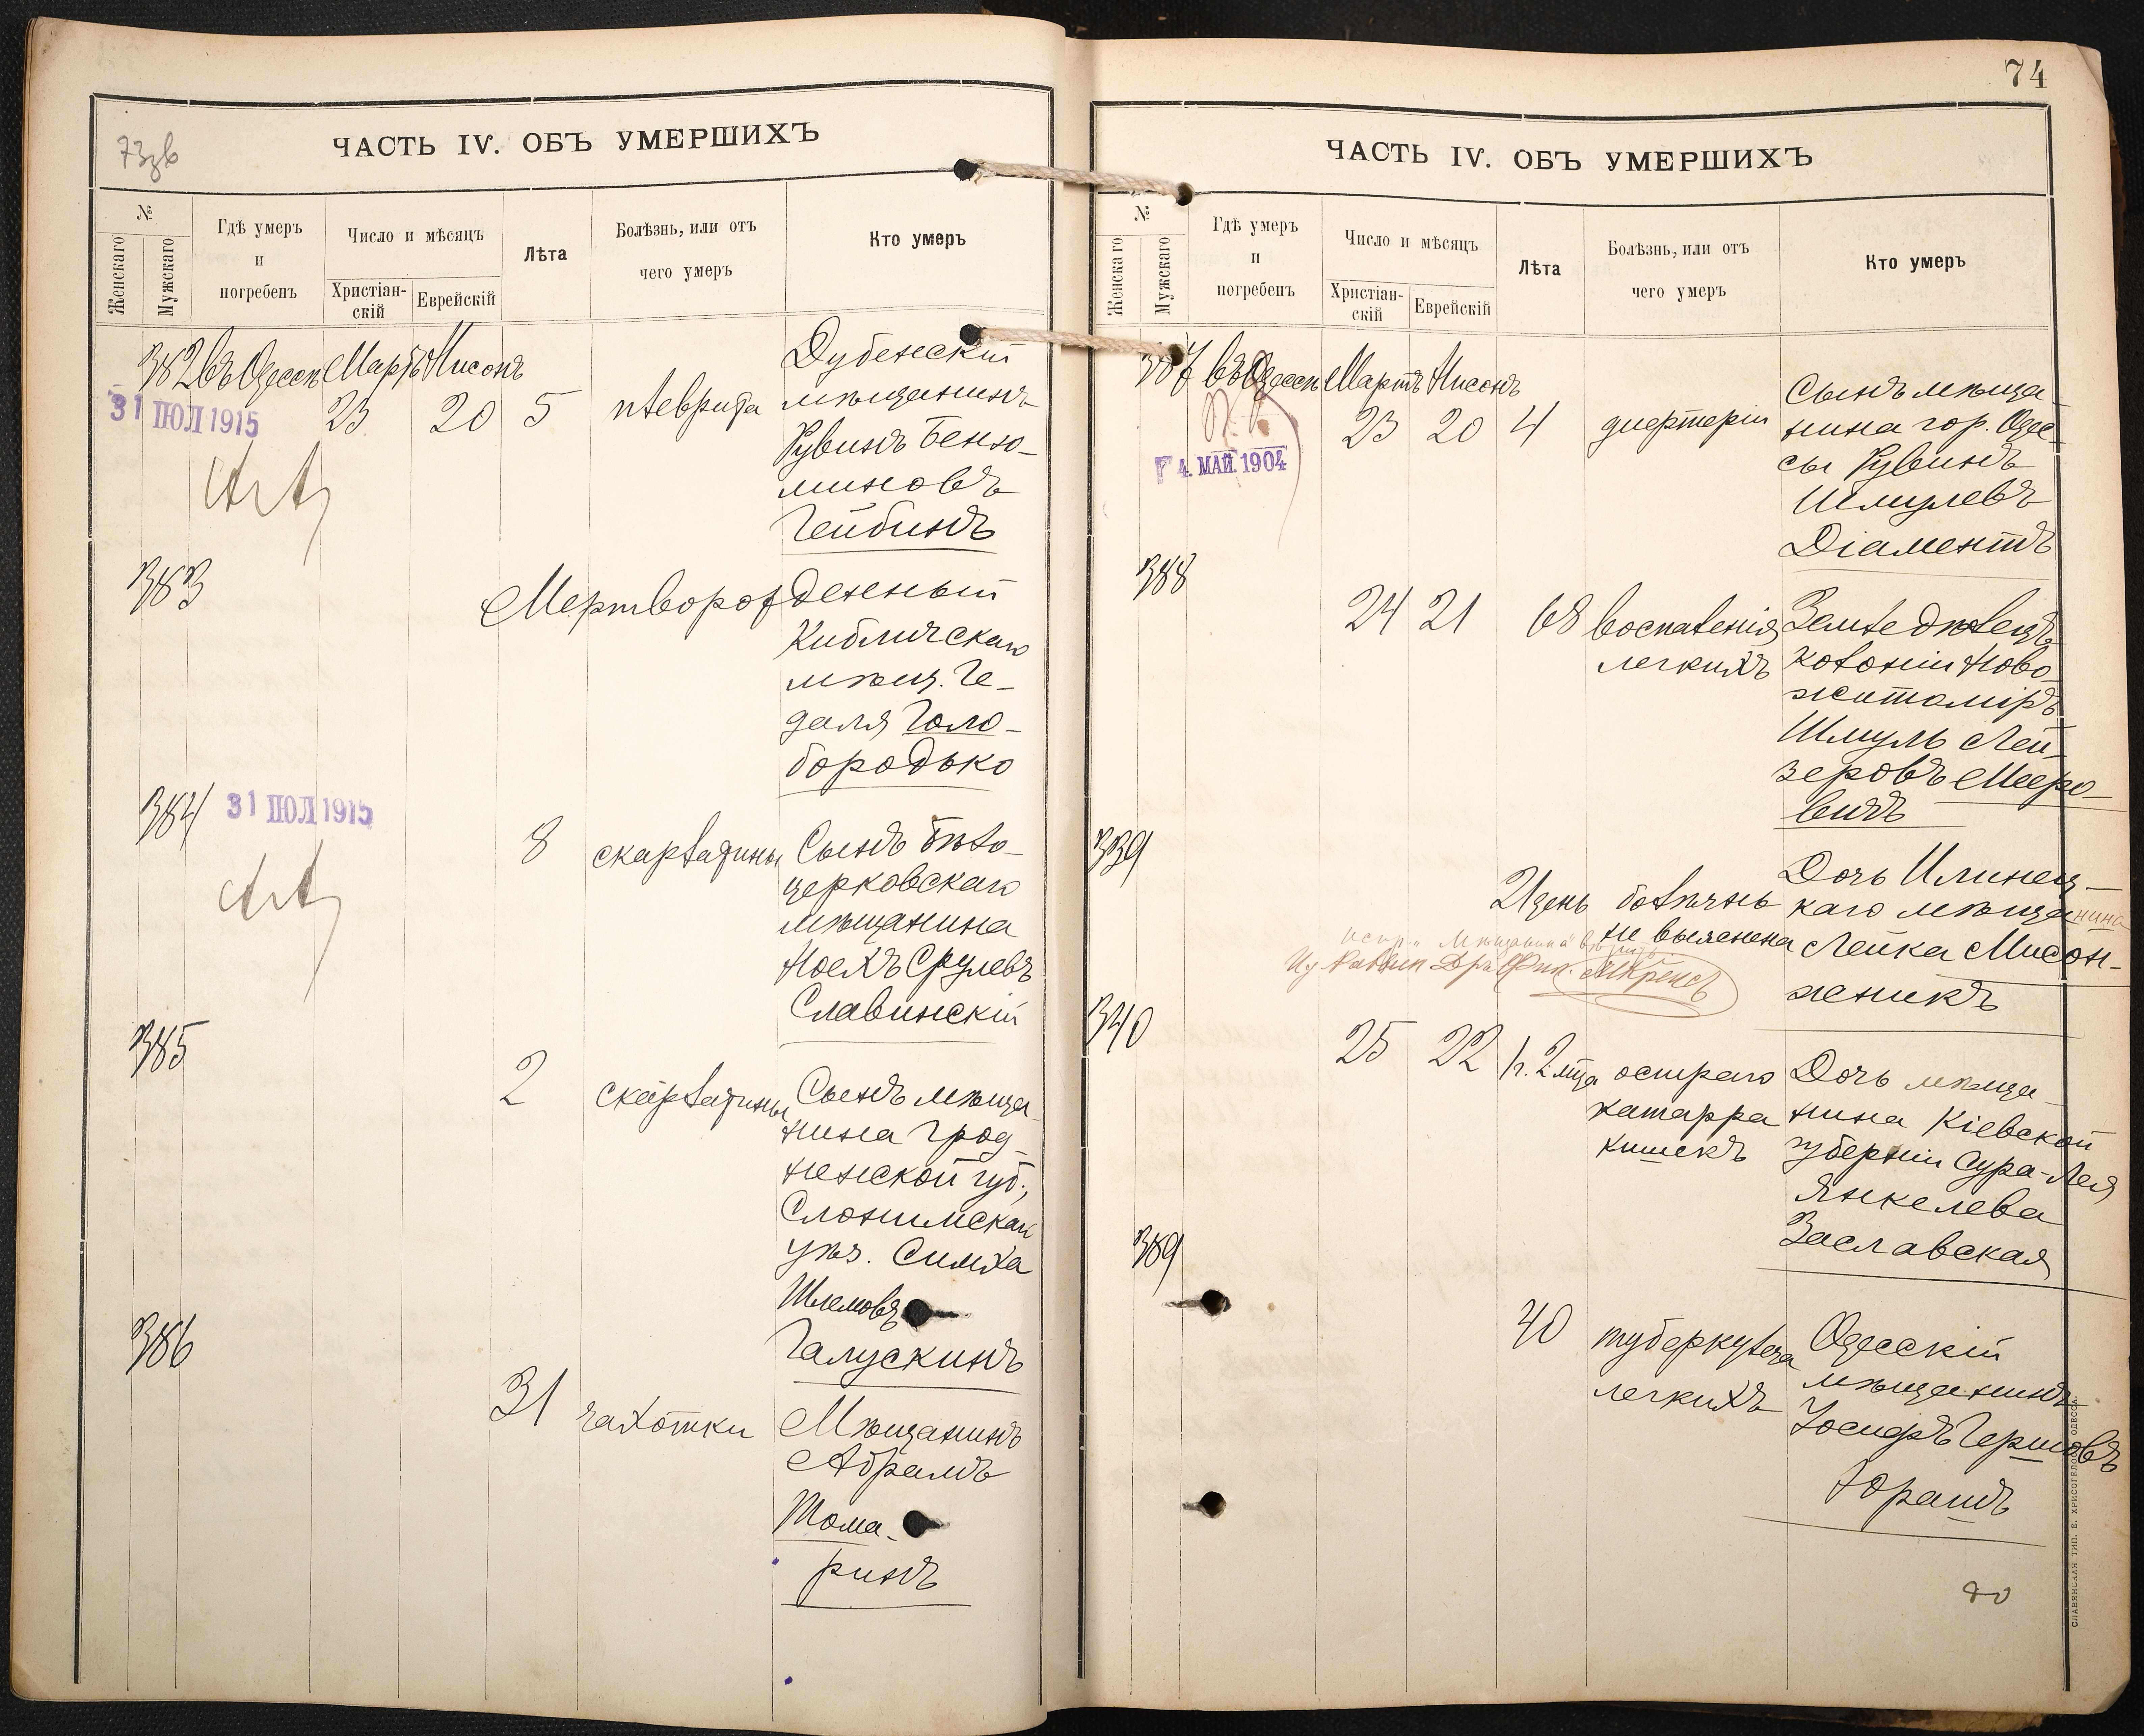 73зв
ЧАСТЬ IV. ОБЪ УМЕРШИХЪ
№
Женскаго
Мужскаго
Гдѣ умеръ
и
погребенъ
Число и мѣсяцъ
Христіан-
скій
Еврейскій
Лѣта
Болѣзнь, или отъ
чего умеръ
Кто умеръ
382 въ Одессѣ Мартъ Нисонъ
31 ІЮЛ 1915
23 20 5 плеврита
Дубенскій
мѣщанинъ
Рувинъ Бензо-
миновъ
Гейбинъ
383
Мертворожденный
Кибличскаго
мѣщ. Ге-
даля Голо-
бородько
384
31 ІЮЛ 1915
8 скарлатины
Сынъ Бѣло-
церковскаго
мѣщанина
Ноехъ Срулевъ
Славинскій
385
2 скарлатины
Сынъ мѣща-
нина Грод-
ненской губ.,
Слонимскаго
уѣз. Симха
Шлемовъ
Галускинъ
386
31 чахотки
Мѣщанинъ
Абрамъ
Тома-
ринъ
74
ЧАСТЬ IV. ОБЪ УМЕРШИХЪ
№
Женскаго
Мужскаго
Гдѣ умеръ
и
погребенъ
Число и мѣсяцъ
Христіан-
скій
Еврейскій
Лѣта
Болѣзнь, или отъ
чего умеръ
Кто умеръ
387 въ Одессѣ Мартъ Нисонъ
4. МАЙ. 1904
23 20 4 дифтеріи
Сынъ мѣща-
нина гор. Одес-
сы Рувинъ
Шмулевъ
Діаментъ
388
24 21 68 воспаленія
легкихъ
Земледѣлецъ
колоніи Ново-
житоміръ
Шмуль Лей-
зеровъ Мееро-
вичъ
339
21 день болѣзнь
не выяснена
Дочь Илинец-
каго мѣщанина
Лейка Мисон-
жникъ
340
25 22 1 г. 2 мца остраго
катарра
кишекъ
Дочь мѣща-
нина Кіевской
губерніи Сура-Лея
Янкелева
Заславская
389
40 туберкулеза
легкихъ
Одесскій
мѣщанинъ
Іосифъ Гершовъ
Юрашъ
СЛАВЯНСКАЯ ТИП. Е. ХРИСОГЕЛОСЪ ОДЕССА.